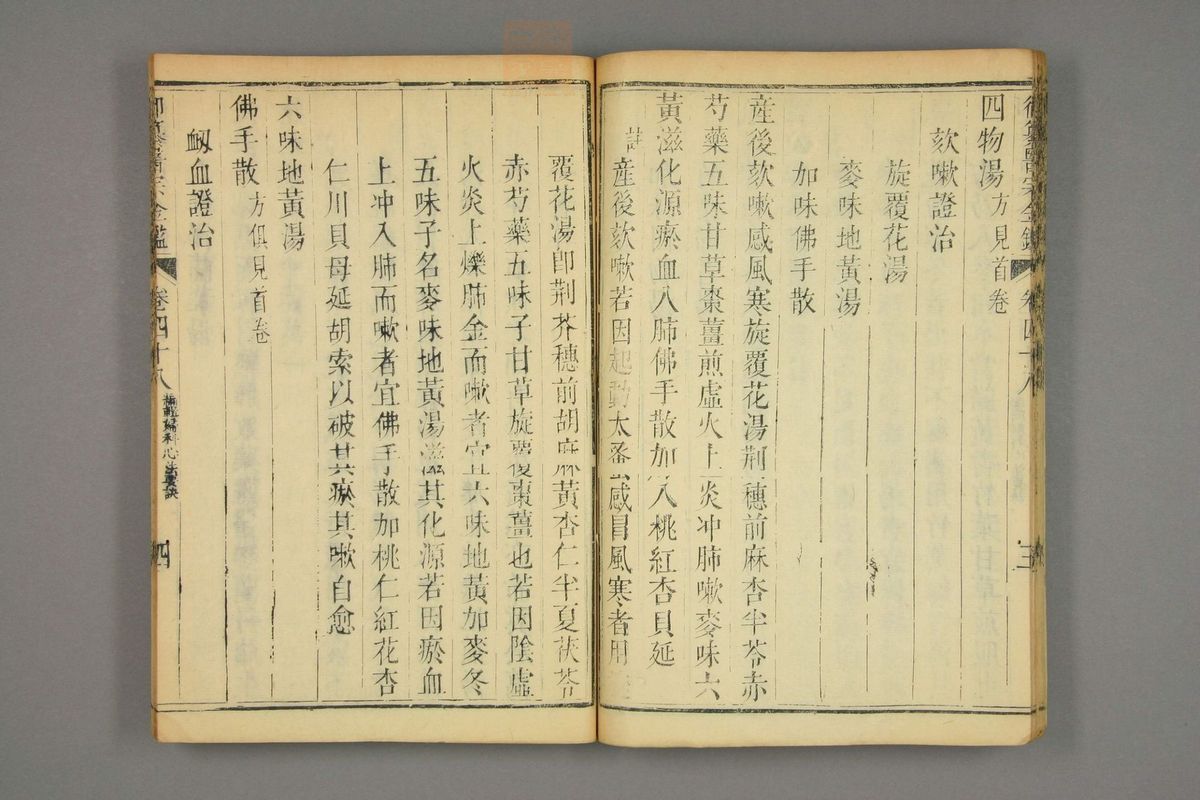 四物湯 方見首卷
欬嗽證治
旋覆花湯
麥味地黃湯
加味佛手散
産後欬嗽感風寒旋覆花湯荆穗前麻杏半苓赤
芍藥五味甘草棗薑煎虛火上炎冲肺嗽麥味六
黃滋化源瘀血入肺佛手散加入桃紅杏貝延
註産後欬嗽若因起動太蚤感冒風寒者用
覆花湯卽荆芥穗前胡麻黃杏仁半夏茯苓
赤芍藥五味子甘草旋覆棗薑也若因陰虛
火炎上爍肺金而嗽者宜六味地黃加麥冬
五味子名麥味地黃湯滋其化源若因瘀血
上冲入肺而嗽者宜佛手散加桃仁紅花杏
仁川貝母延胡索以破其瘀其嗽自愈
六味地黃湯
佛手散 方俱見首卷
衂血證治
御纂醫宗金鑑 卷四十八 編輯婦科心法要訣 四
御纂醫宗金鑑 卷四十八 三